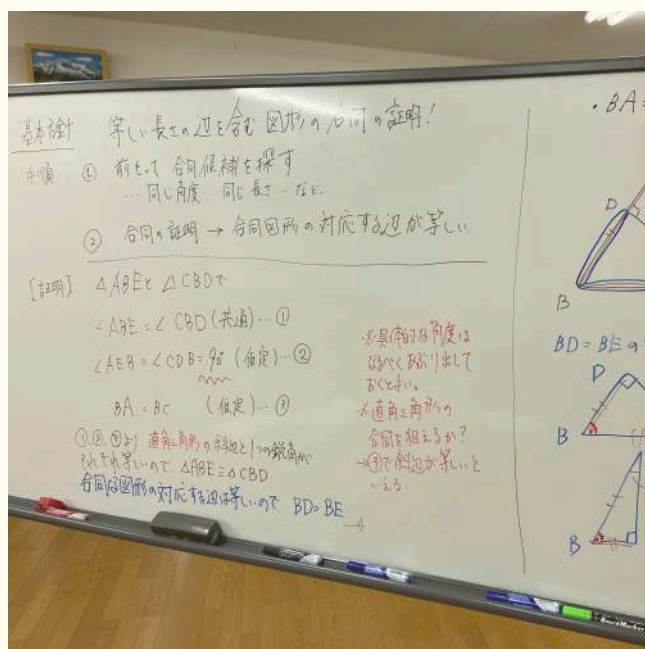 基本方針 等しい長さの辺を含む図形の合同の証明!
手順 ① 前もって合同候補を探す
… 同じ角度、同じ長さ… など.
② 合同の証明 → 合同図形の対応する辺が等しい
[証明] △ABEと△CBDで
∠ABE=∠CBD(共通)…①
∠AEB=∠CDB=90°(仮定)…②
BA=BC (仮定)…③
①,②,③より 直角三角形の斜辺と1つの鋭角が
それぞれ等しいので、△ABE≡△CBD
合同な図形の対応する辺は等しいので、BD=BE
※具体的な角度は
なるべくあぶり出して
おくとよい。
※直角三角形の
合同を狙えるか?
→③で斜辺が等しいと
いえる
・BA=
D
B
BD=BEの
D
B
B
BoardMarker